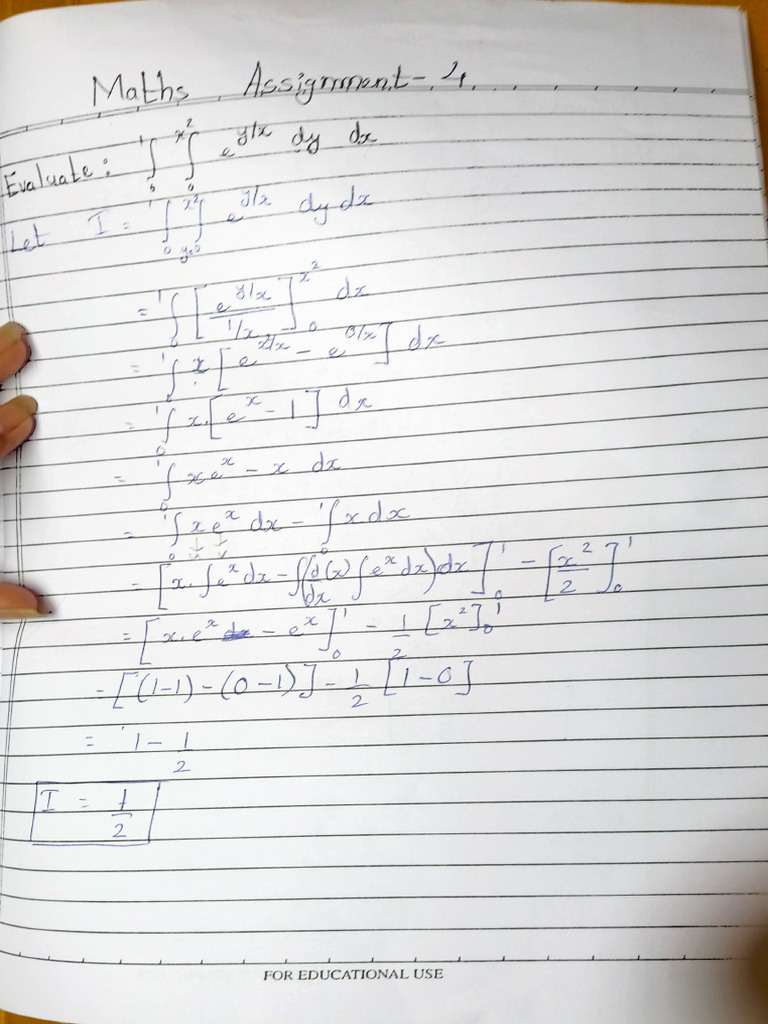 Maths Assignment - 4
Evaluate: ∫₀¹ ∫₀^{x²} e^{y/x} dy dx
Let I = ∫₀¹ ∫_{y=0}^{x²} e^{y/x} dy dx
= ∫₀¹ [e^{y/x} / 1/x]₀^{x²} dx
= ∫₀¹ x [e^{x²/x} - e^{0/x}] dx
= ∫₀¹ x.[e^x - 1] dx
= ∫₀¹ xe^x - x dx
= ∫₀¹ x e^x dx - ∫₀¹ x dx
= [x. ∫e^x dx - ∫(d/dx (x) ∫e^x dx) dx]₀¹ - [x²/2]₀¹
= [x.e^x - e^x]₀¹ - 1/2 [x²]₀¹
= [(1-1) - (0-1)] - 1/2 [1-0]
= 1 - 1/2
I = 1/2
FOR EDUCATIONAL USE